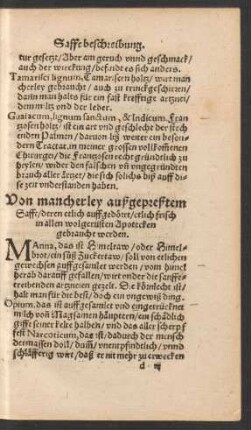 Saffe beschreibung.
tur gesetzt/ Aber am geruch vnnd geschmack/
auch der wirckung/ befindt es sich anders.
Tamarisci lignum, Tamariscen holtz/ wirt man
cherley gebraucht/ auch zu trinckgeschirren/
dann man halts für ein fast kreffrige artznei/
dem miltz vnd der leber.
Guaiacum, lignum sanctum, & Indicum, Fran
tzosen holtz/ ist ein art vnd geschlecht der stech
enden Palmen/ daruon liß weiter ein beson
dern Tractat, in meiner grossen volkom̃nen
Chirurgei/ die Frantzosen recht gründtlich zu
heylen/ wider den falschen vñ vngegründten
brauch aller ärtzte/ die sich solichs biß auff di
se zeit vnderstanden haben.
Von mancherley außgepreßtem
Safft/ deren etlich auffgedörrt/ etlich frisch
in allen wolgerüsten Apotecken
gebraucht werden.
Manna, das ist Himelraw/ oder Himel-
brot/ ein süß Zuckertaw/ soll von etlichen
gewechsen auffgesamlet werden/ vom himel
herab darauff gefallen/ wirt vnder die sanffte
treibenden artzneien gezelt. Die kömlecht ist/
halt man für das best/ doch ein vngewiß ding.
Opium, das ist auffgesamlet vnd eingetrückt
milch von Magsamen häuptern/ ein schädlich
gifft seiner kelte halben/ vnd das aller scherpf
fest Narcoticum, das ist/ dadurch der mensch
dermassen doll/ daub/ vnentpfindtlich/ vnnd
schläfferig wirt/ daß er nit mehr zu erwecken
d iij